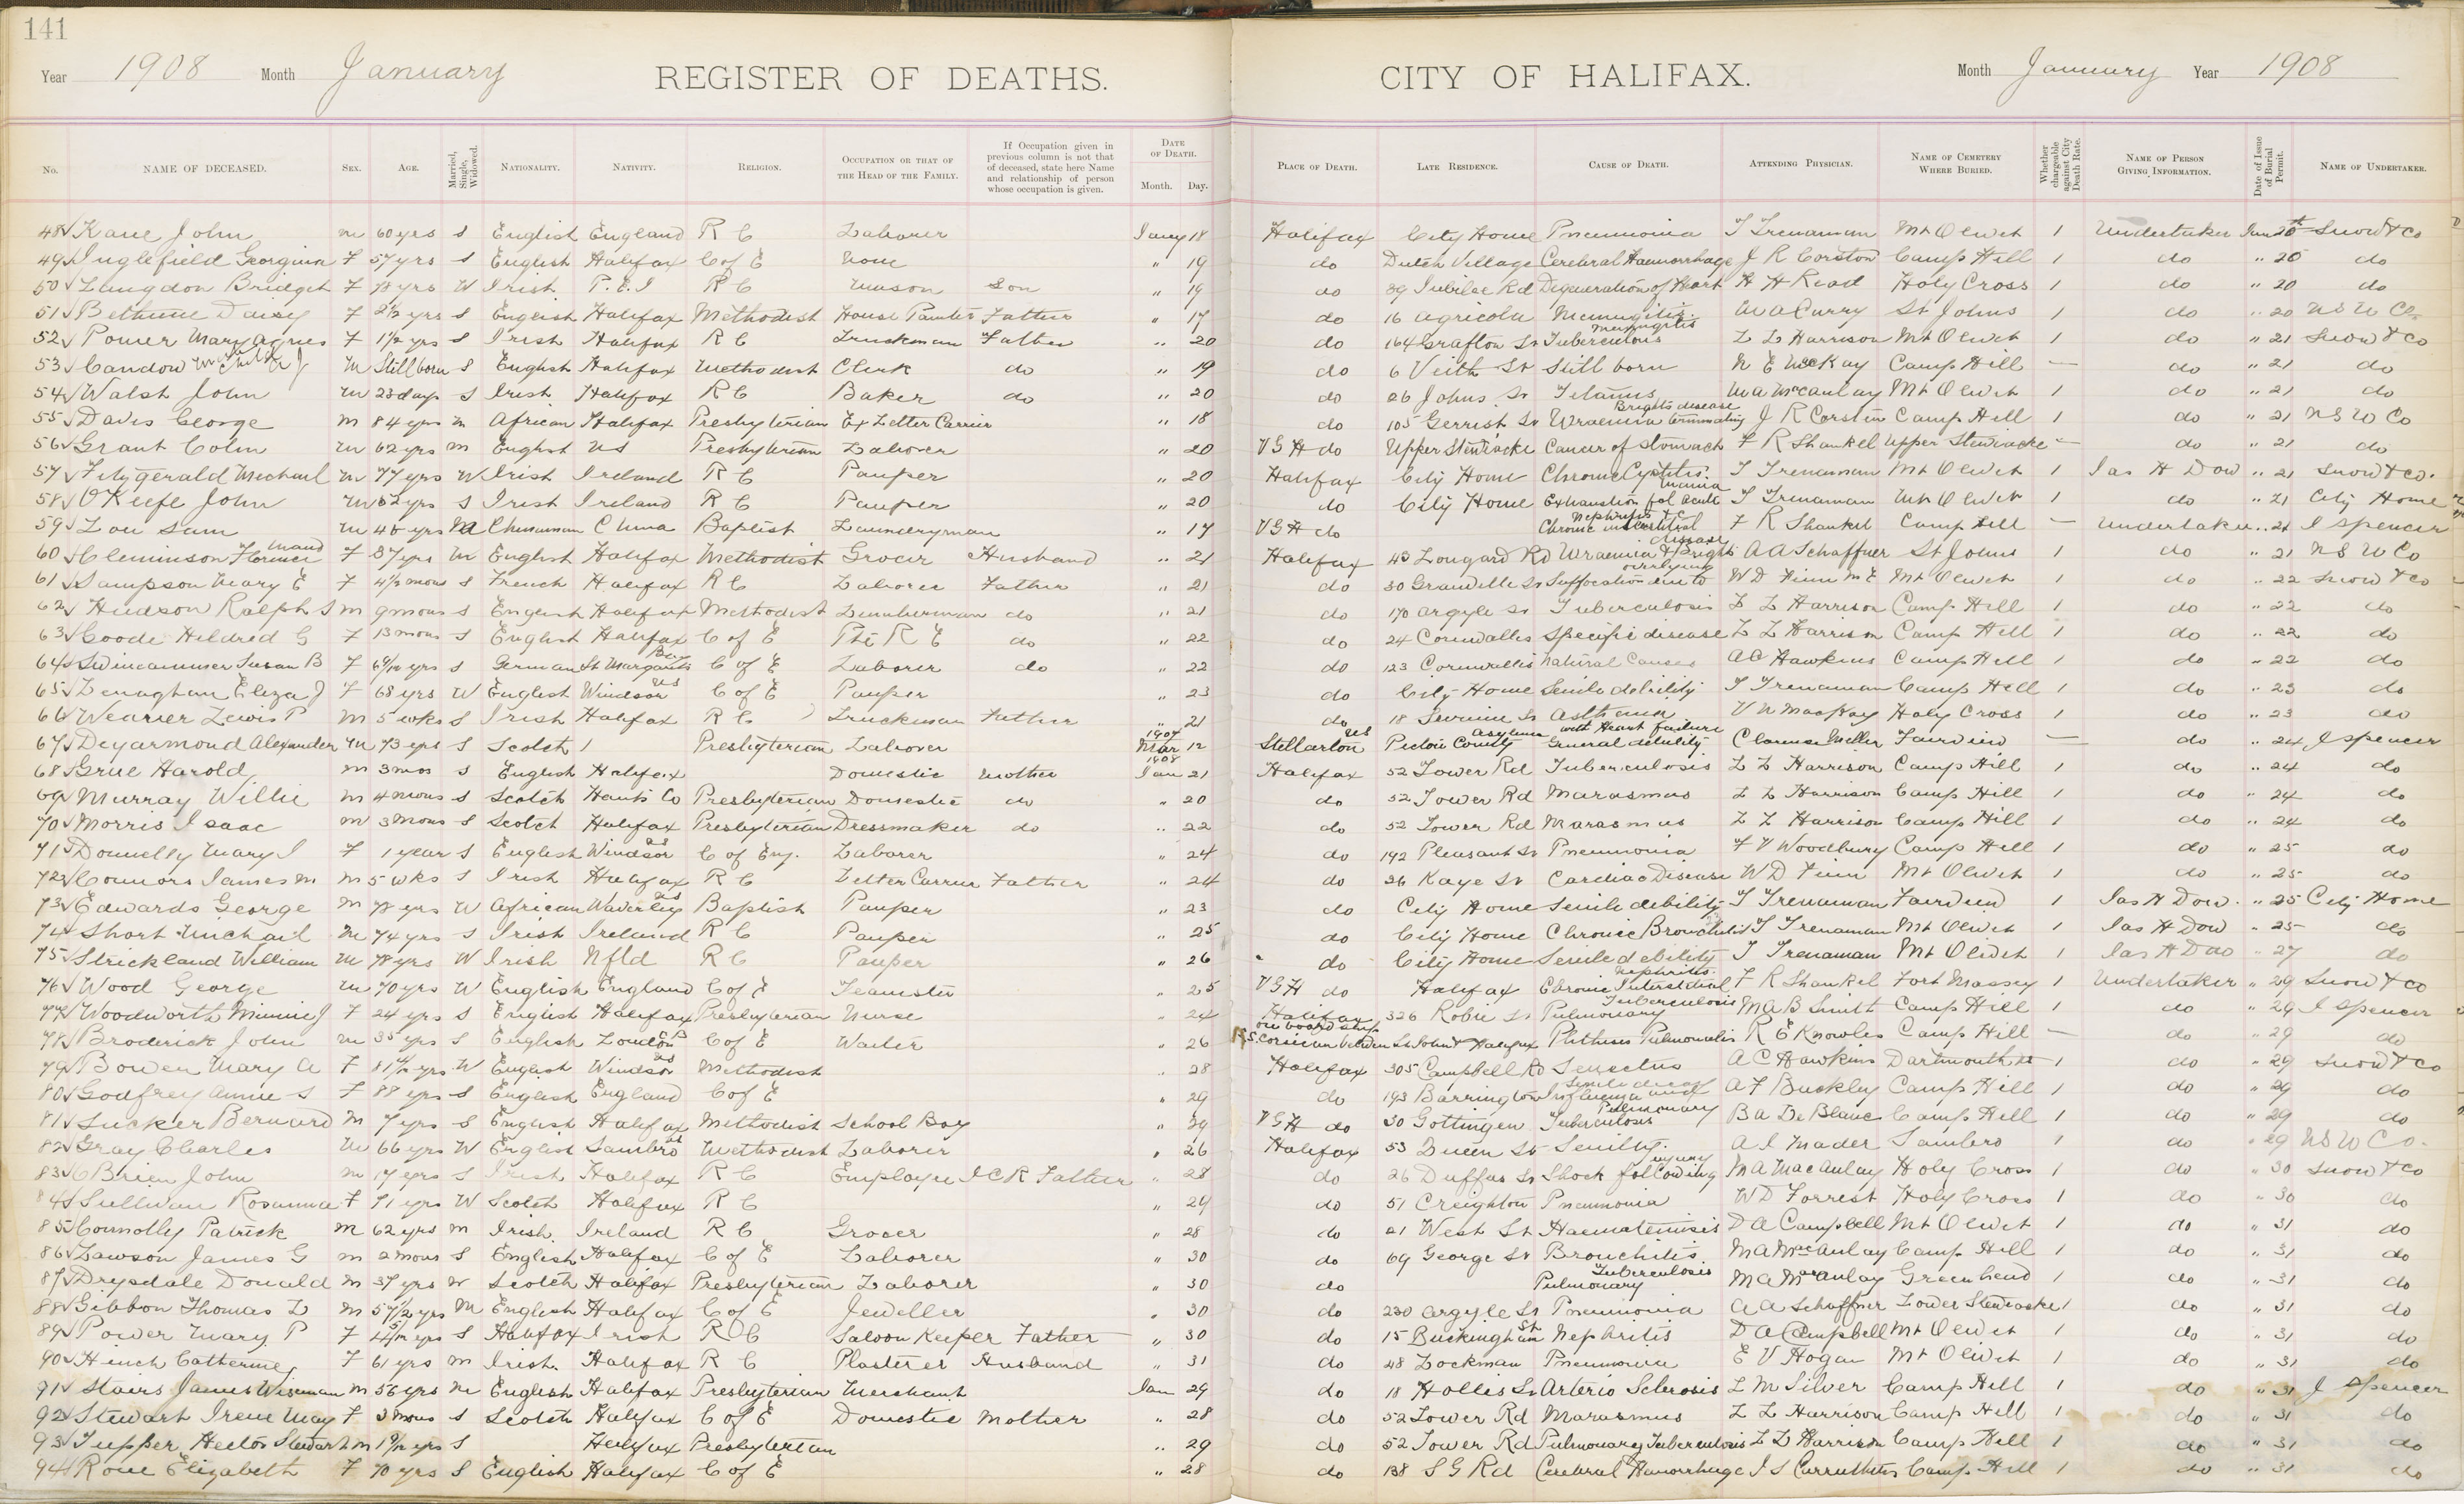 141
Year 1908 Month January REGISTER OF DEATHS. CITY OF HALIFAX. Month January Year 1908
No. NAME OF DECEASED. SEX. AGE. Married, Single, Widowed. NATIONALITY. NATIVITY. RELIGION. OCCUPATION OR THAT OF THE HEAD OF THE FAMILY. If Occupation given in previous column is not that of deceased, state here Name and relationship of person whose occupation is given. DATE OF DEATH. Month. Day. PLACE OF DEATH. LATE RESIDENCE. CAUSE OF DEATH. ATTENDING PHYSICIAN. NAME OF CEMETERY WHERE BURIED. Whether chargeable against City Death Rate. NAME OF PERSON GIVING INFORMATION. Date of Issue of Burial Permit. NAME OF UNDERTAKER.
48 Kane John m 60 yrs S English England R C Laborer Jany 18 Halifax City Home Pneumonia T Trenaman Mt Olivet 1 Undertaker Jan 20th Snow & Co
49 Inglefield Georgina F 57 yrs S English Halifax C of E None " 19 do Dutch Village Cerebral Haemorrhage J R Corston Camp Hill 1 do " 20 do
50 Langdon Bridget F 78 yrs W Irish P.E.I R C Mason Son " 19 do 39 Jubilee Rd Degeneration of Heart H H Read Holy Cross 1 do " 20 do
51 Bethune Daisy F 2½ yrs S English Halifax Methodist House Painter Father " 17 do 16 Agricola Meningitis M A Curry St Johns 1 do " 20 N S U Co
52 Power Mary Agnes F 1½ yrs S Irish Halifax R C Truckman Father " 20 do 164 Grafton St Tuberculous Meningitis L L Harrison Mt Olivet 1 do " 21 Snow & Co
53 Candow M Stillborn S English Halifax Methodist Clerk do " 19 do 6 Veith St Still born N E McKay Camp Hill — do " 21 do
54 Walsh John M 23 days S Irish Halifax R C Baker do " 20 do 26 Johns St Tetanus M A MacAulay Mt Olivet 1 do " 21 do
55 Davis George M 84 yrs M African Halifax Presbyterian Ex Letter Carrier " 18 do 105 Gerrish St Uraemia terminating Brights disease J R Corston Camp Hill 1 do " 21 N S U Co
56 Grant Colin M 62 yrs M English N S Presbyterian Laborer " 20 V G H do Upper Stewiacke Cancer of Stomach F R Shankel Upper Stewiacke — do " 21 do
57 Fitzgerald Michael M 77 yrs W Irish Ireland R C Pauper " 20 Halifax City Home Chronic Cystitis T Trenaman Mt Olivet 1 Jas H Dow " 21 Snow & Co.
58 O'Keefe John M 62 yrs S Irish Ireland R C Pauper " 20 do City Home Exhaustion fol acute mania T Trenaman Mt Olivet 1 do " 21 City Home
59 Lou Sam M 45 yrs M Chinaman China Baptist Laundryman " 17 V G H do Chronic interstitial Nephritis F R Shankel Camp Hill — Undertaker " 21 J Spencer
60 Cleminson Florence Maud F 37 yrs M English Halifax Methodist Grocer Husband " 21 Halifax 43 Longard Rd Uraemia & Brights disease A A Schaffner St Johns 1 do " 21 N S U Co
61 Sampson Mary E F 4½ mons S French Halifax R C Laborer Father " 21 do 30 Granville St Suffocation due to overlying W D Finn M E Mt Olivet 1 do " 22 Snow & Co
62 Hudson Ralph S M 9 mons S English Halifax Methodist Lumberman do " 21 do 170 Argyle St Tuberculosis L L Harrison Camp Hill 1 do " 22 do
63 Goode Hildred G F 13 mons S English Halifax C of E Pte R E do " 22 do 24 Cornwallis Specific disease L L Harrison Camp Hill 1 do " 22 do
64 Swinamer Susan B F 6 9/12 yrs S German St Margarets Bay C of E Laborer do " 22 do 123 Cornwallis Natural Causes A C Hawkins Camp Hill 1 do " 22 do
65 Lenaghan Eliza J F 68 yrs W English Windsor NS C of E Pauper " 23 do City Home Senile debility T Trenaman Camp Hill 1 do " 23 do
66 Wearier Lewis P M 5 wks S Irish Halifax R C Truckman Father " 21 do 18 Asthenia V N MacKay Holy Cross 1 do " 23 do
67 Deyarmond Alexander M 73 yrs S Scotch Presbyterian Laborer 1907 Mar 12 Stellarton NS Pictou County Asylum General debility with Heart failure Clarence Miller Fairview — do " 24 J Spencer
68 Grue Harold M 3 mos S English Halifax Domestic Mother 1908 Jan 21 Halifax 52 Tower Rd Tuberculosis L L Harrison Camp Hill 1 do " 24 do
69 Murray Willie M 4 mons S Scotch Hants Co Presbyterian Domestic do " 20 do 52 Tower Rd Marasmus L L Harrison Camp Hill 1 do " 24 do
70 Morris Isaac M 3 Mons S Scotch Halifax Presbyterian Dressmaker do " 22 do 52 Tower Rd Marasmus L L Harrison Camp Hill 1 do " 24 do
71 Donnelly Mary J F 1 year S English Windsor NS C of Eng. Laborer " 24 do 192 Pleasant St Pneumonia F V Woodbury Camp Hill 1 do " 25 do
72 Connors James M M 5 wks S Irish Halifax R C Letter Carrier Father " 24 do 26 Kaye St Cardiac Disease W D Finn Mt Olivet 1 do " 25 do
73 Edwards George M 78 yrs W African Waverley NS Baptist Pauper " 23 do City Home Senile debility T Trenaman Fairview 1 Jas H Dow " 25 City Home
74 Short Michael M 74 yrs S Irish Ireland R C Pauper " 25 do City Home Chronic Bronchitis T Trenaman Mt Olivet 1 Jas H Dow " 25 do
75 Strickland William M 78 yrs W Irish Nfld R C Pauper " 26 do City Home Senile debility T Trenaman Mt Olivet 1 Jas H Dow " 27 do
76 Wood George M 70 yrs W English England C of E Teamster " 25 V G H do Halifax Chronic Interstitial nephritis F R Shankel Fort Massey 1 Undertaker " 29 Snow & Co
77 Woodworth Minnie J F 24 yrs S English Halifax Presbyterian Nurse " 24 Halifax 326 Robie St Pulmonary Tuberculosis M A B Smith Camp Hill 1 do " 29 J Spencer
78 Broderick John M 35 yrs S English London C of E Waiter " 26 on board ship S.S. Corsican between St John & Halifax Phthisis Pulmonalis R E Knowles Camp Hill — do " 29 do
79 Bowen Mary A F 81 yrs W English Windsor NS Methodist " 28 Halifax 305 Campbell Rd Senectus A C Hawkins Dartmouth 1 do " 29 Snow & Co
80 Godfrey Annie S F 88 yrs S English England C of E " 29 do 193 Barrington Influenza and Senile decay A F Buckley Camp Hill 1 do " 29 do
81 Tucker Bernard M 7 yrs S English Halifax Methodist School Boy " 29 V G H do 30 Gottingen Pulmonary Tuberculosis B A De Blanc Camp Hill 1 do " 29 do
82 Gray Charles M 66 yrs W English Sambro NS Methodist Laborer " 26 Halifax 53 Queen St Senility A I Mader Sambro 1 do " 29 N S U Co.
83 O'Brien John M 17 yrs S Irish Halifax R C Employee I C R Father " 28 do 26 Duffus St Shock following injury M A MacAulay Holy Cross 1 do " 30 Snow & Co
84 Sullivan Rosanna F 71 yrs W Scotch Halifax R C " 29 do 51 Creighton Pneumonia W D Forrest Holy Cross 1 do " 30 do
85 Connolly Patrick M 62 yrs M Irish Ireland R C Grocer " 28 do 21 West St Haematemisis D A Campbell Mt Olivet 1 do " 31 do
86 Lawson James G M 2 mons S English Halifax C of E Laborer " 30 do 69 George St Bronchitis M A MacAulay Camp Hill 1 do " 31 do
87 Drysdale Donald M 37 yrs Scotch Halifax Presbyterian Laborer " 30 do Pulmonary Tuberculosis M A MacAulay Greenhead 1 do " 31 do
88 Gibbon Thomas L M 57½ yrs M English Halifax C of E Jeweller " 30 do 230 Argyle St Pneumonia A A Schaffner Lower Stewiacke 1 do " 31 do
89 Power Mary P F 4 5/12 yrs S Halifax Irish R C Saloon Keeper Father " 30 do 15 Buckingham St Nephritis D A Campbell Mt Olivet 1 do " 31 do
90 Hinch Catherine F 61 yrs M Irish. Halifax R C Plasterer Husband " 31 do 48 Lockman Pneumonia E V Hogan Mt Olivet 1 do " 31 do
91 Stairs James Wiseman M 56 yrs M English Halifax Presbyterian Merchant Jan 29 do 18 Hollis St Arterio Sclerosis L M Silver Camp Hill 1 do " 31 J Spencer
92 Stewart Irene May F 3 mons S Scotch Halifax C of E Domestic Mother " 28 do 52 Tower Rd Marasmus L L Harrison Camp Hill 1 do " 31 do
93 Tupper Hector Stewart M 1 9/12 yrs S Halifax Presbyterian " 29 do 52 Tower Rd Pulmonary Tuberculosis L L Harrison Camp Hill 1 do " 31 do
94 Rone Elizabeth F 70 yrs S English Halifax C of E " 28 do 138 S G Rd Cerebral Hemorrhage J S Carruthers Camp Hill 1 do " 31 do